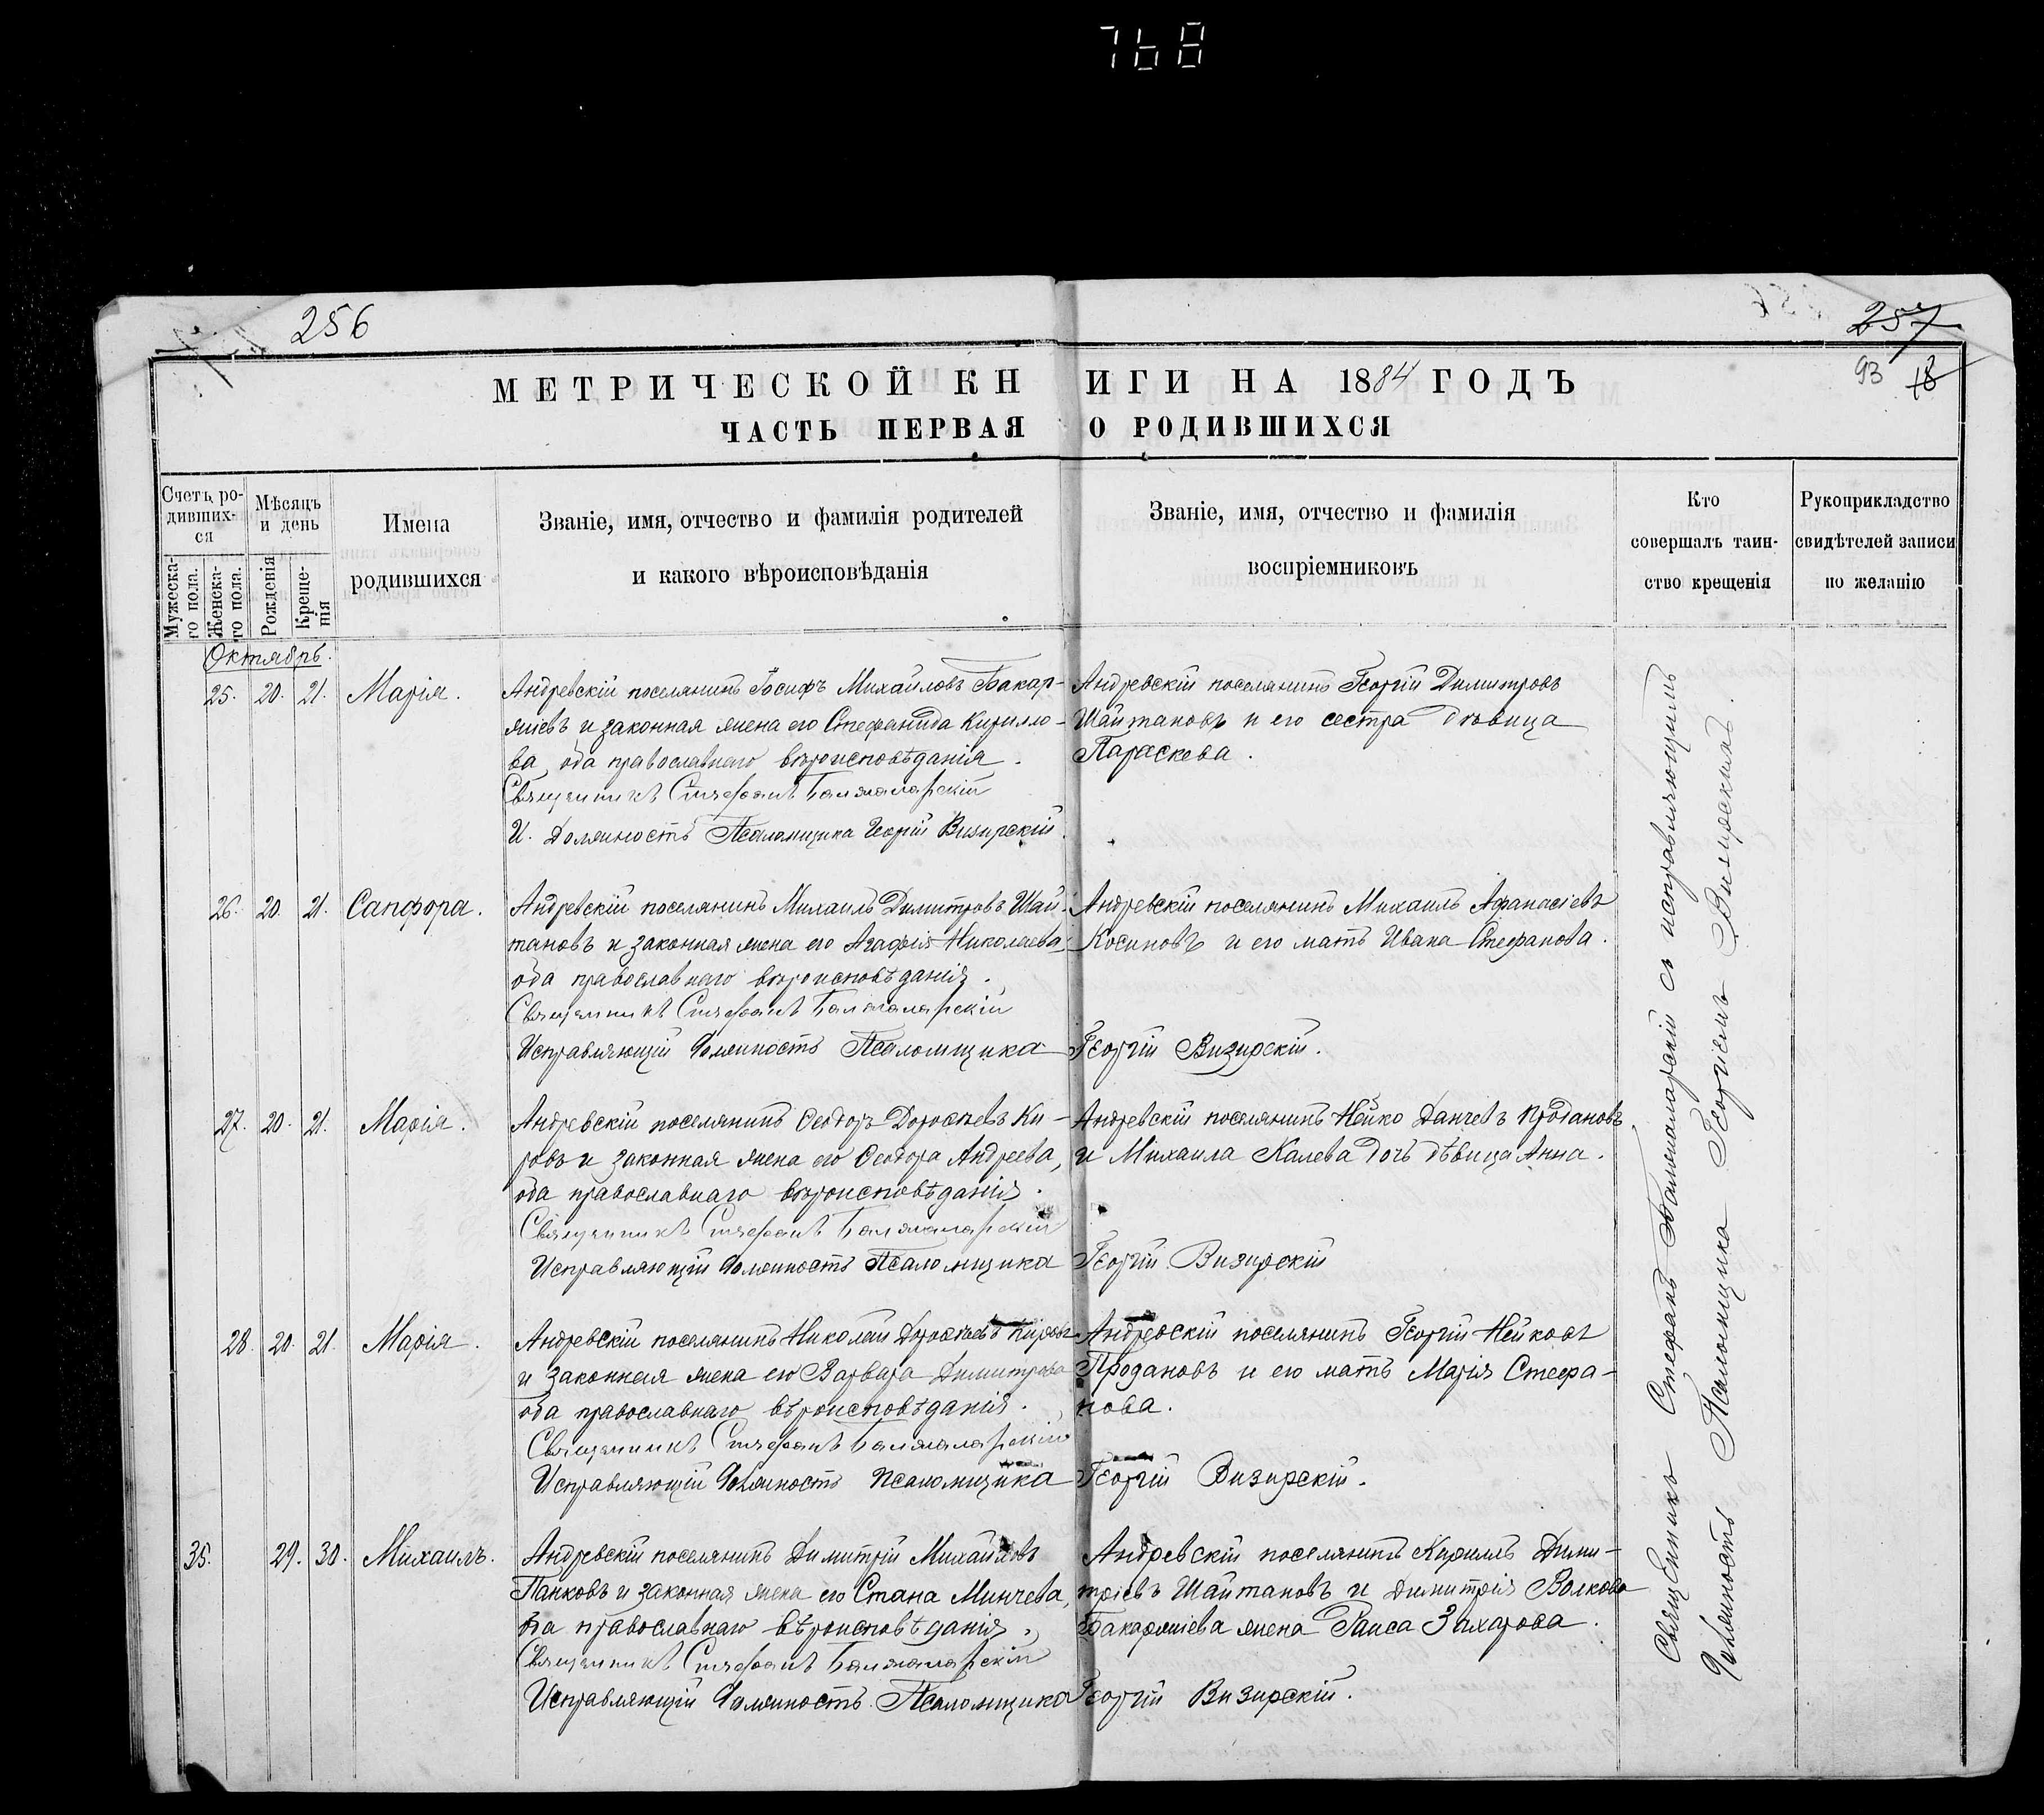 768
256
257
93 18
МЕТРИЧЕСКОЙ КНИГИ НА 1884 ГОДЪ
ЧАСТЬ ПЕРВАЯ О РОДИВШИХСЯ
Счетъ родившихся
Мужескаго пола.
Женскаго пола.
Мѣсяцъ и день
Рожденія
Крещенія
Имена
родившихся
Званіе, имя, отчество и фамилія родителей
и какого вѣроисповѣданія
Званіе, имя, отчество и фамилія
воспріемниковъ
Кто
совершалъ таин-
ство крещенія
Рукоприкладство
свидѣтелей записи
по желанію
Октябрь.
25. 20. 21. Марія.
Андревскій поселянинъ Іосифъ Михайловъ Бакар-
жіевъ и законная жена его Стефанида Кирилло-
ва, оба православнаго вѣроисповѣданія.
Священникъ Стефанъ Балжаларскій
И. Должность Псаломщика Георгій Визирскій.
Андревскій поселянинъ Георгій Димитровъ
Шайтановъ и его сестра дѣвица
Параскева.
26. 20. 21. Сапфора.
Андревскій поселянинъ Михаилъ Димитровъ Шай-
тановъ и законная жена его Агафія Николаева,
оба православнаго вѣроисповѣданія.
Священникъ Стефанъ Балжаларскій
Исправляющій должность Псаломщика Георгій Визирскій.
Андревскій поселянинъ Михаилъ Афанасіевъ
Косиновъ и его мать Ивана Стефанова.
27. 20. 21. Марія.
Андревскій поселянинъ Ѳеодоръ Дорофѣевъ Ки-
ровъ и законная жена его Ѳеодора Андреева,
оба православнаго вѣроисповѣданія.
Священникъ Стефанъ Балжаларскій
Исправляющій должность Псаломщика Георгій Визирскій
Андревскій поселянинъ Нейко Данчевъ Продановъ
и Михаила Калева дочь дѣвица Анна.
28. 20. 21. Марія.
Андревскій поселянинъ Николай Дорофѣевъ Кировъ
и законная жена его Варвара Димитрова
оба православнаго вѣроисповѣданія.
Священникъ Стефанъ Балжаларскій
Исправляющій должность Псаломщика Георгій Визирскій.
Андревскій поселянинъ Георгій Нейковъ
Продановъ и его мать Марія Стефа-
нова.
35. 29. 30. Михаилъ.
Андревскій поселянинъ Димитрій Михайловъ
Панковъ и законная жена его Стана Минчева,
оба православнаго вѣроисповѣданія,
Священникъ Стефанъ Балжаларскій
Исправляющій должность Псаломщика Георгій Визирскій.
Андревскій поселянинъ Кириллъ Дими-
тріевъ Шайтановъ и Димитрія Волкова
Бакаржіева жена Раиса Захарова.
Священникъ Стефанъ Балжаларскій съ исправляющимъ
должность Псаломщика Георгіемъ Визирскимъ.